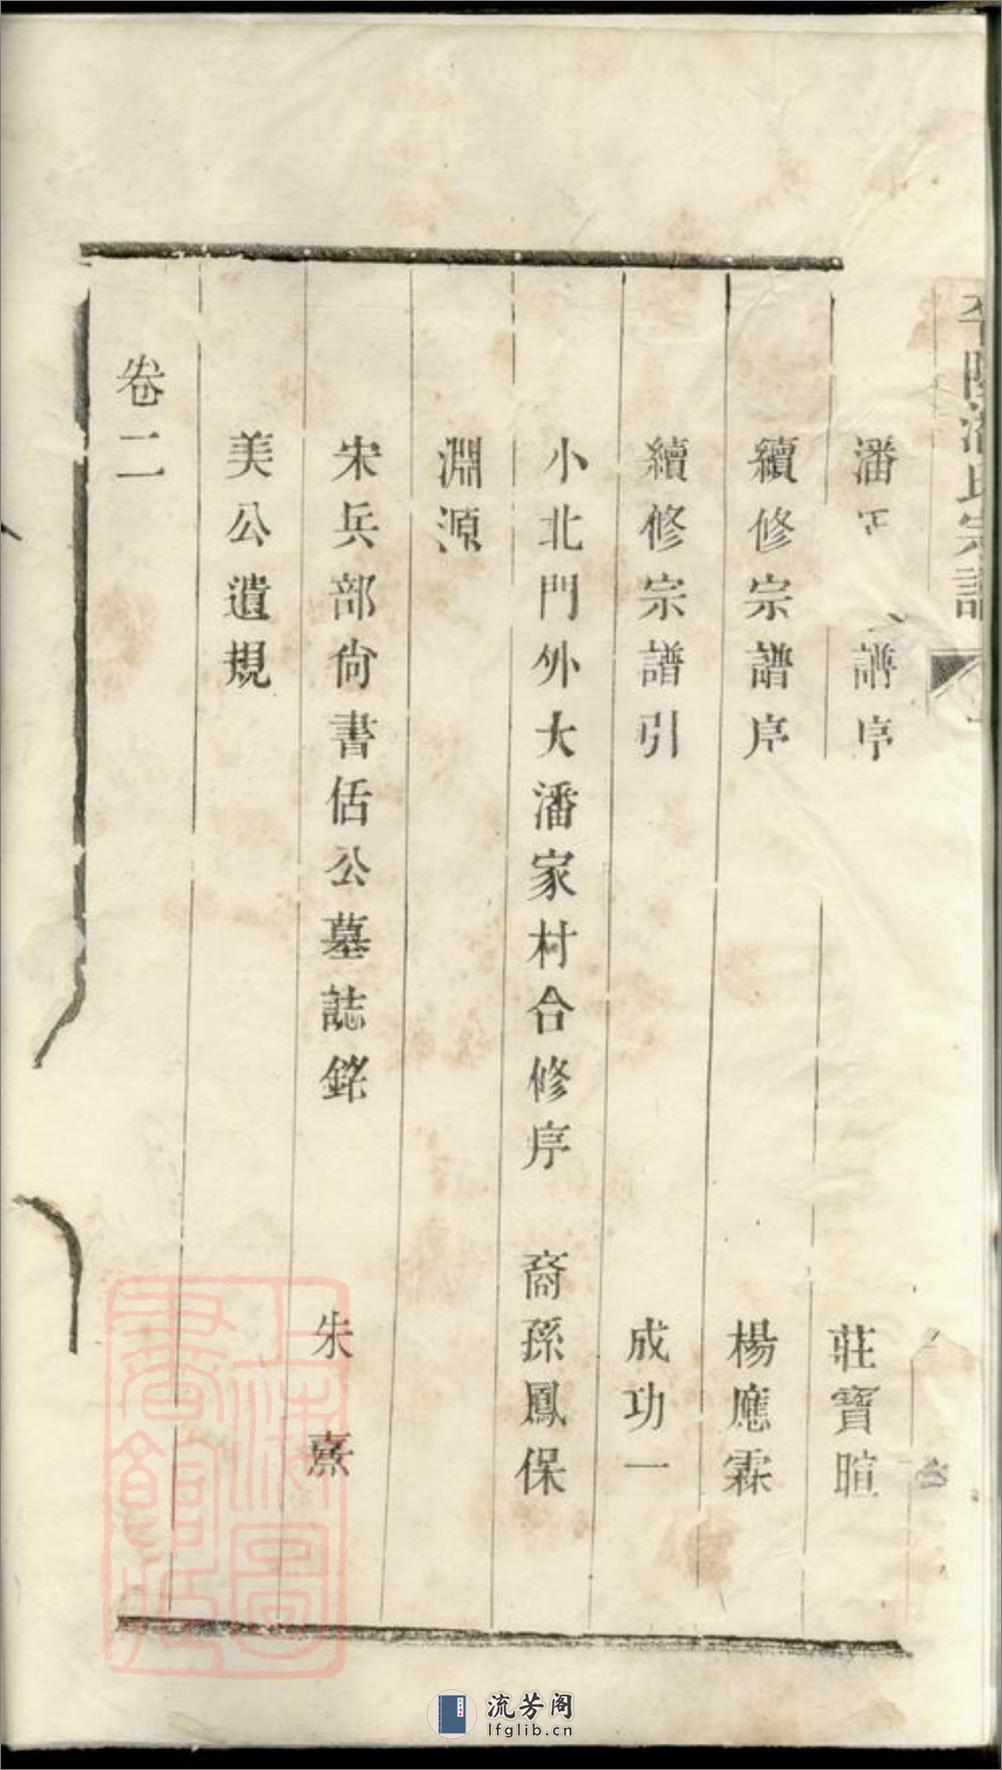 潘氏宗譜
潘 譜序 莊寶暄
續修宗譜序 楊應霖
續修宗譜引 成功一
小北門外大潘家村合修序 裔孫鳳保
淵源
宋兵部尙書佸公墓誌銘 朱熹
美公遺規
卷二
上海圖書館藏
流芳阁
lfglib.cn